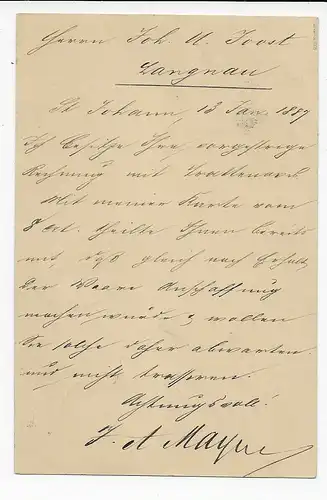 Herrn Joh. U. Joost
Langnau
St Johann, 13 Jan 1887
Ich besitze Ihre vorgestrige
Rechnung mit Trattenavis.
Mit meiner Karte vom
8 ct. theilte Ihnen bereits
mit, daß gleich nach Erhalt
der Waare Anschaffung
machen würde & wollen
Sie solche daher abwarten
und nicht trassieren.
Achtungsvoll!
J. A Mayer